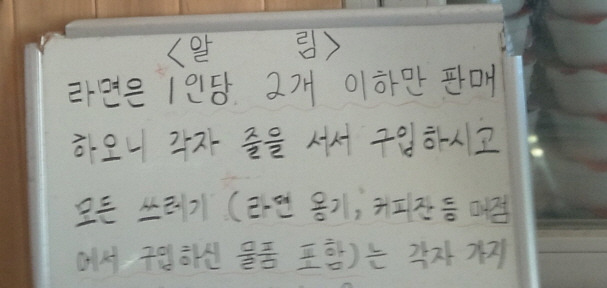 <알 림>
라면은 1인당 2개 이하만 판매
하오니 각자 줄을 서서 구입하시고
모든 쓰레기 (라면 용기, 커피잔 등 매점
에서 구입하신 물품 포함)는 각자 가지